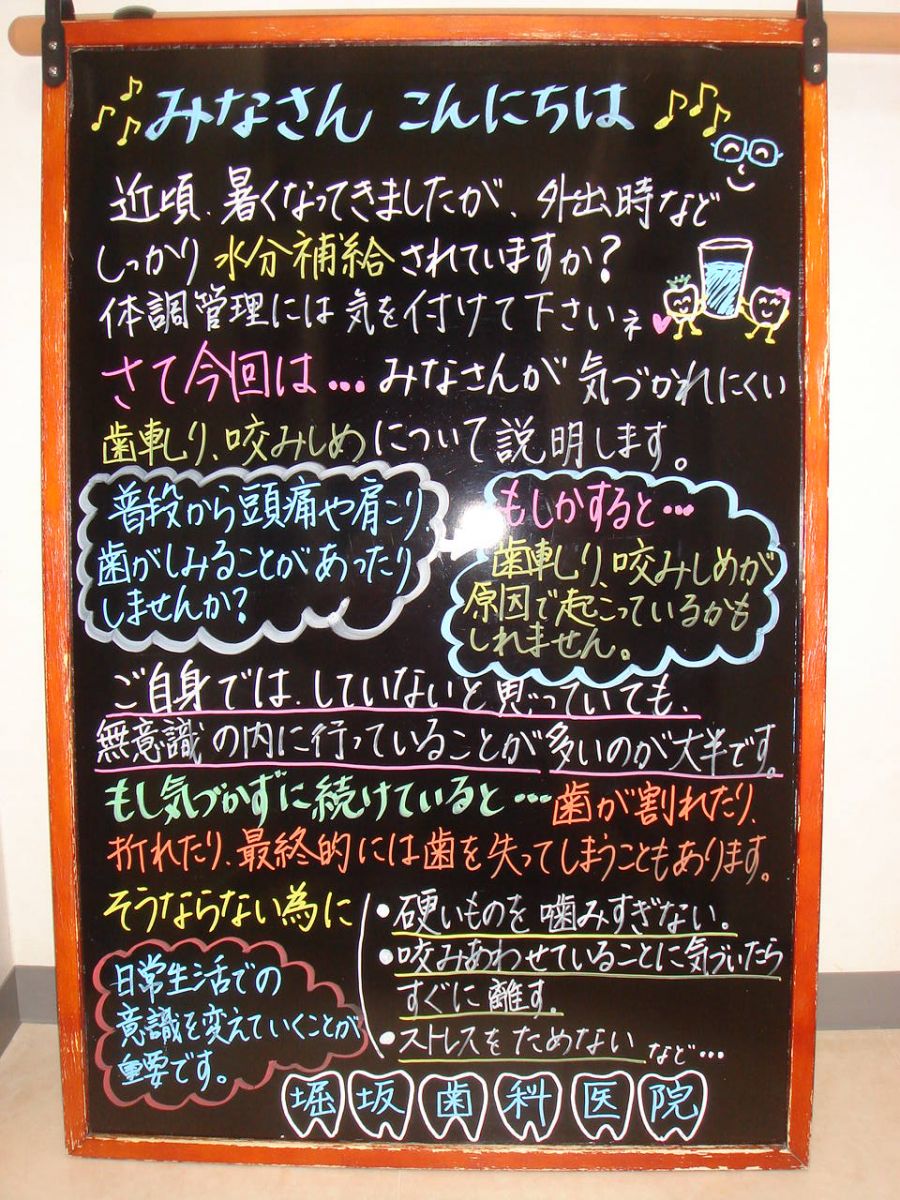 みなさん こんにちは
近頃、暑くなってきましたが、外出時など
しっかり水分補給されていますか?
体調管理には気を付けて下さいネ
さて今回は…みなさんが気づかれにくい
歯軋り、咬みしめについて説明します。
普段から頭痛や肩こり、
歯がしみることがあったり
しませんか?
もしかすると…
歯軋り、咬みしめが
原因で起こっているかも
しれません。
ご自身では、していないと思っていても、
無意識の内に行っていることが多いのが大半です。
もし気づかずに続けていると…歯が割れたり、
折れたり、最終的には歯を失ってしまうこともあります。
そうならない為に
・硬いものを噛みすぎない。
・咬みあわせていることに気づいたら
すぐに離す。
・ストレスをためない など…
日常生活での
意識を変えていくことが
重要です。
堀坂歯科医院